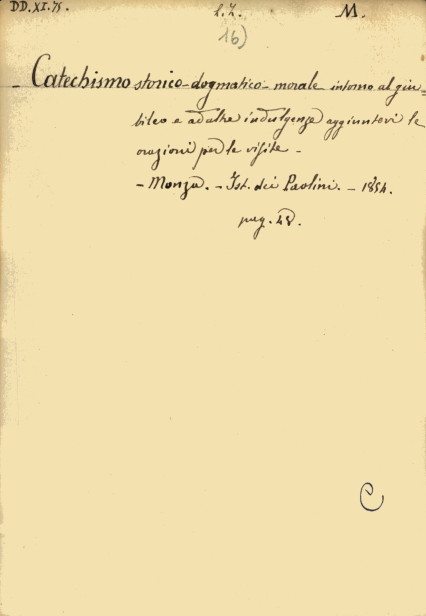 DD.XI.75.
M.
16)
- Catechismo storico-dogmatico-morale intorno al giu-
bileo e ad altre indulgenze aggiuntovi le
orazioni per le visite -
- Monza. - Ist. dei Paolini. - 1854.
pag. 48.
C